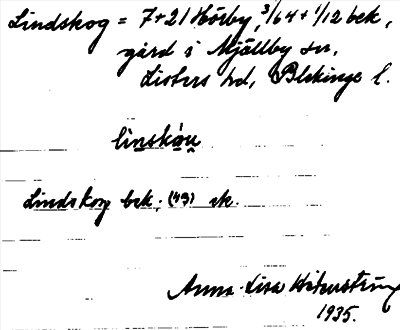 Lindskog = 7+21 Hörby, 3/64 + 1/12 bek,
gård i Mjällby sn,
Listers hd, Blekinge l.
linskáu
Lindskog bek. (49) sk.
Anna-Lisa
1935.